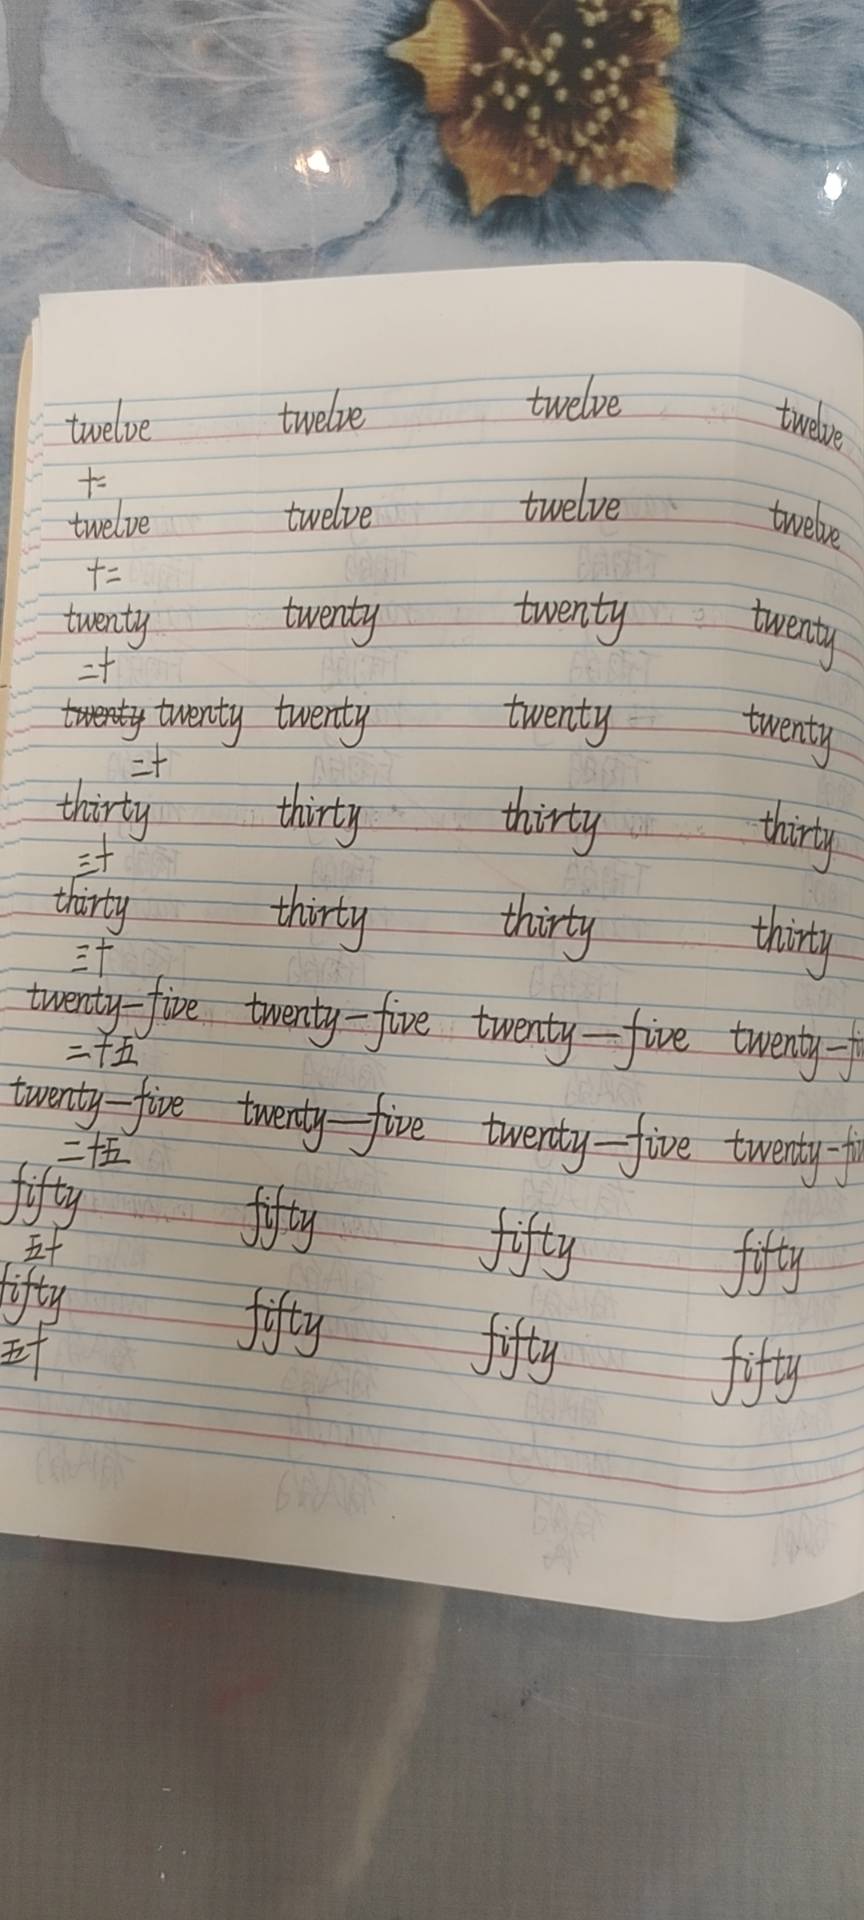 twelve twelve twelve twelve
十二
twelve twelve twelve twelve
十二
twenty twenty twenty twenty
二十
twenty twenty twenty twenty twenty
二十
thirty thirty thirty thirty
三十
thirty thirty thirty thirty
三十
twenty-five twenty-five twenty-five twenty-fi
二十五
twenty-five twenty-five twenty-five twenty-fiv
二十五
fifty fifty fifty fifty
五十
fifty fifty fifty fifty
五十